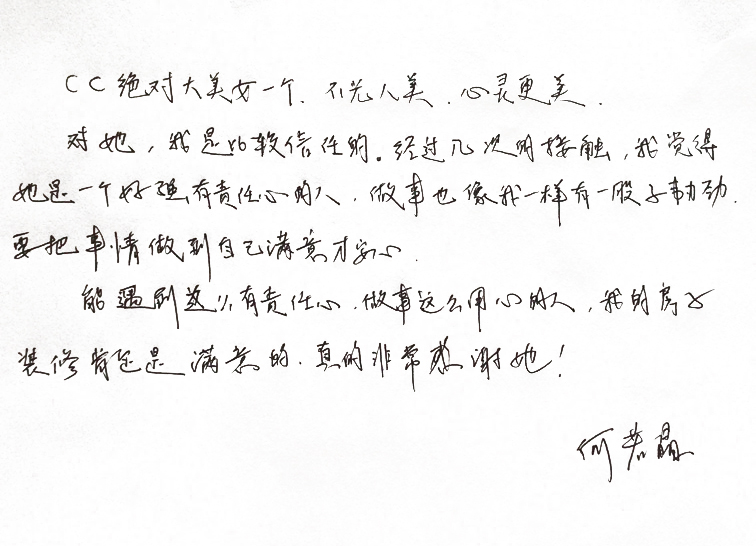 CC绝对大美女一个.不光人美.心灵更美.
对她,我是比较信任的.经过几次的接触,我觉得
她是一个好强有责任心的人.做事也像我一样有一股子韧劲.
要把事情做到自己满意才安心.
能遇到这么有责任心.做事这么用心的人,我的房子
装修肯定是满意的.真的非常感谢她!
何若晶